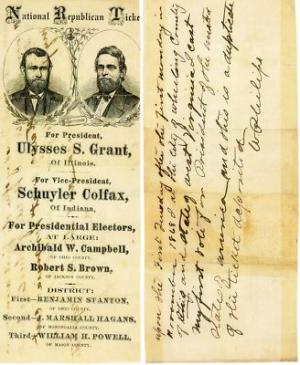 National Republican Ticke
For President,
Ulysses S. Grant,
Of Illinois.
For Vice-President,
Schuyler Colfax,
Of Indiana,
For Presidential Electors,
AT LARGE:
Archibald W. Campbell,
OF OHIO COUNTY.
Robert S. Brown,
OF JACKSON COUNTY.
DISTRICT:
First—BENJAMIN STANTON,
OF OHIO COUNTY.
Second—J. MARSHALL HAGANS,
OF MONONGALIA COUNTY.
Third—WILLIAM H. POWELL,
OF MASON COUNTY.
upon the First Tuesday after the first Monday in
November 1868 at the city of Wheeling County
of Ohio and State of West Virginia I cast
my first vote for President of the United
States of America and this is a duplicate
of the ticket I voted
W Philips